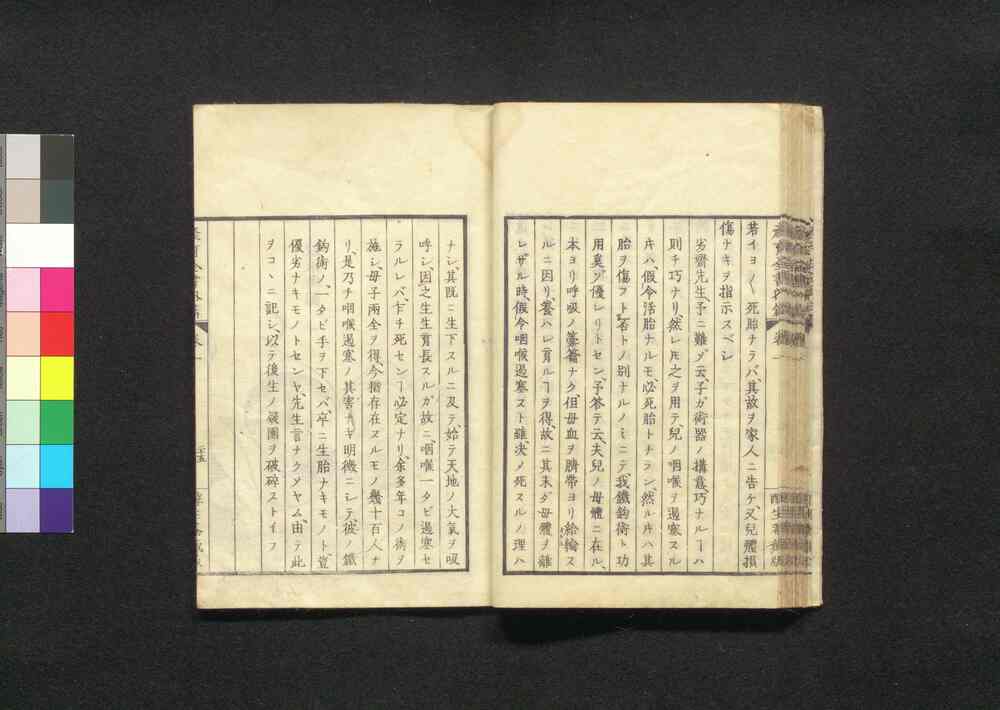 若イヨ〳〵死胎ナラバ、其故ヲ家人ニ告ケ、又兒體損
傷ナキヲ指示スベシ
劣齋先生予ニ難ダ云子ガ術器ノ搆意巧ナルヿハ
則チ巧ナリ、然レ𪜈之ヲ用テ、兒ノ咽喉ヲ過塞スル
𪜈ハ假令活胎ナルモ必死胎トナラン、然ル𪜈ハ其
胎ヲ傷フト否トノ別ナルノミニテ、我鐵鉤術ト功
用奚ゾ優レリトセン、予答テ云、夫兒ノ母體ニ在ル、
本ヨリ呼吸ノ藁籥ナク、但母血ヲ臍帶ヨリ給輸ス
ルニ因リ、養ハレ育ルヿヲ得、故ニ其未ダ母體ヲ離
レザル時、假令咽喉過塞スト雖、决メ死スルノ理ハ
ナシ、其既ニ生下スルニ及テ、始テ天地ノ大氣ヲ吸
呼シ、因之生生育長スルガ故ニ、咽喉一タビ過塞セ
ラルレバ、乍チ死センヿ必定ナリ、余多年コノ術ヲ
施シ、母子兩全ヲ得、今猶存在スルモノ幾十百人ナ
リ、是乃チ咽喉過塞ノ其害ナキ明徴ニシテ、彼ノ鐵
鉤術ノ、一タビ手ヲ下セバ、卒ニ生胎ナキモノト、豈
優劣ナキモノトセンヤ、先生言ナクメヤム、由テ此
ヲコヽニ記シ、以テ後生ノ疑團ヲ破碎ストイフ